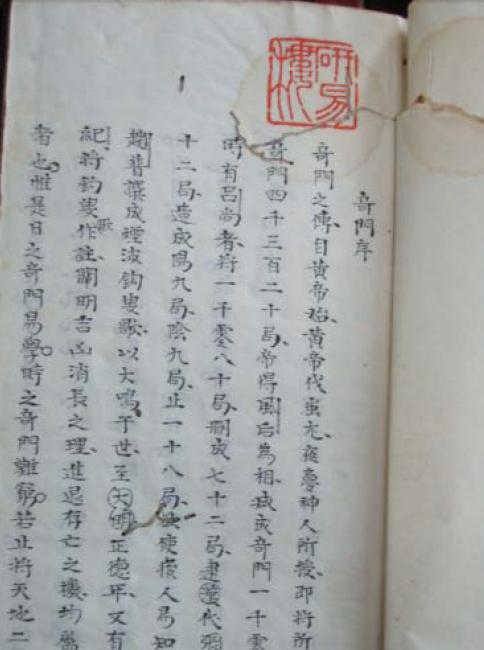 研易樓
奇門序
奇門之傳自黃帝始、黃帝代蚩尤、夜夢神人所授、即將所
奇門四千三百二十局、帝得風后為相、減成奇門一千零
時有呂尚者、將一千零八十局、刪成七十二局、代
十二局、造成陽九局、陰九局、止一十八局、使後人易知
趙普譔成煙波釣叟歌、以大鳴于世、至大明正德年、又有
紀、將釣叟歌作註、闡明吉凶消長之理、進退存亡之機、均屬
者也。惟是日之奇門易學。時之奇門難窮。若止將天地二